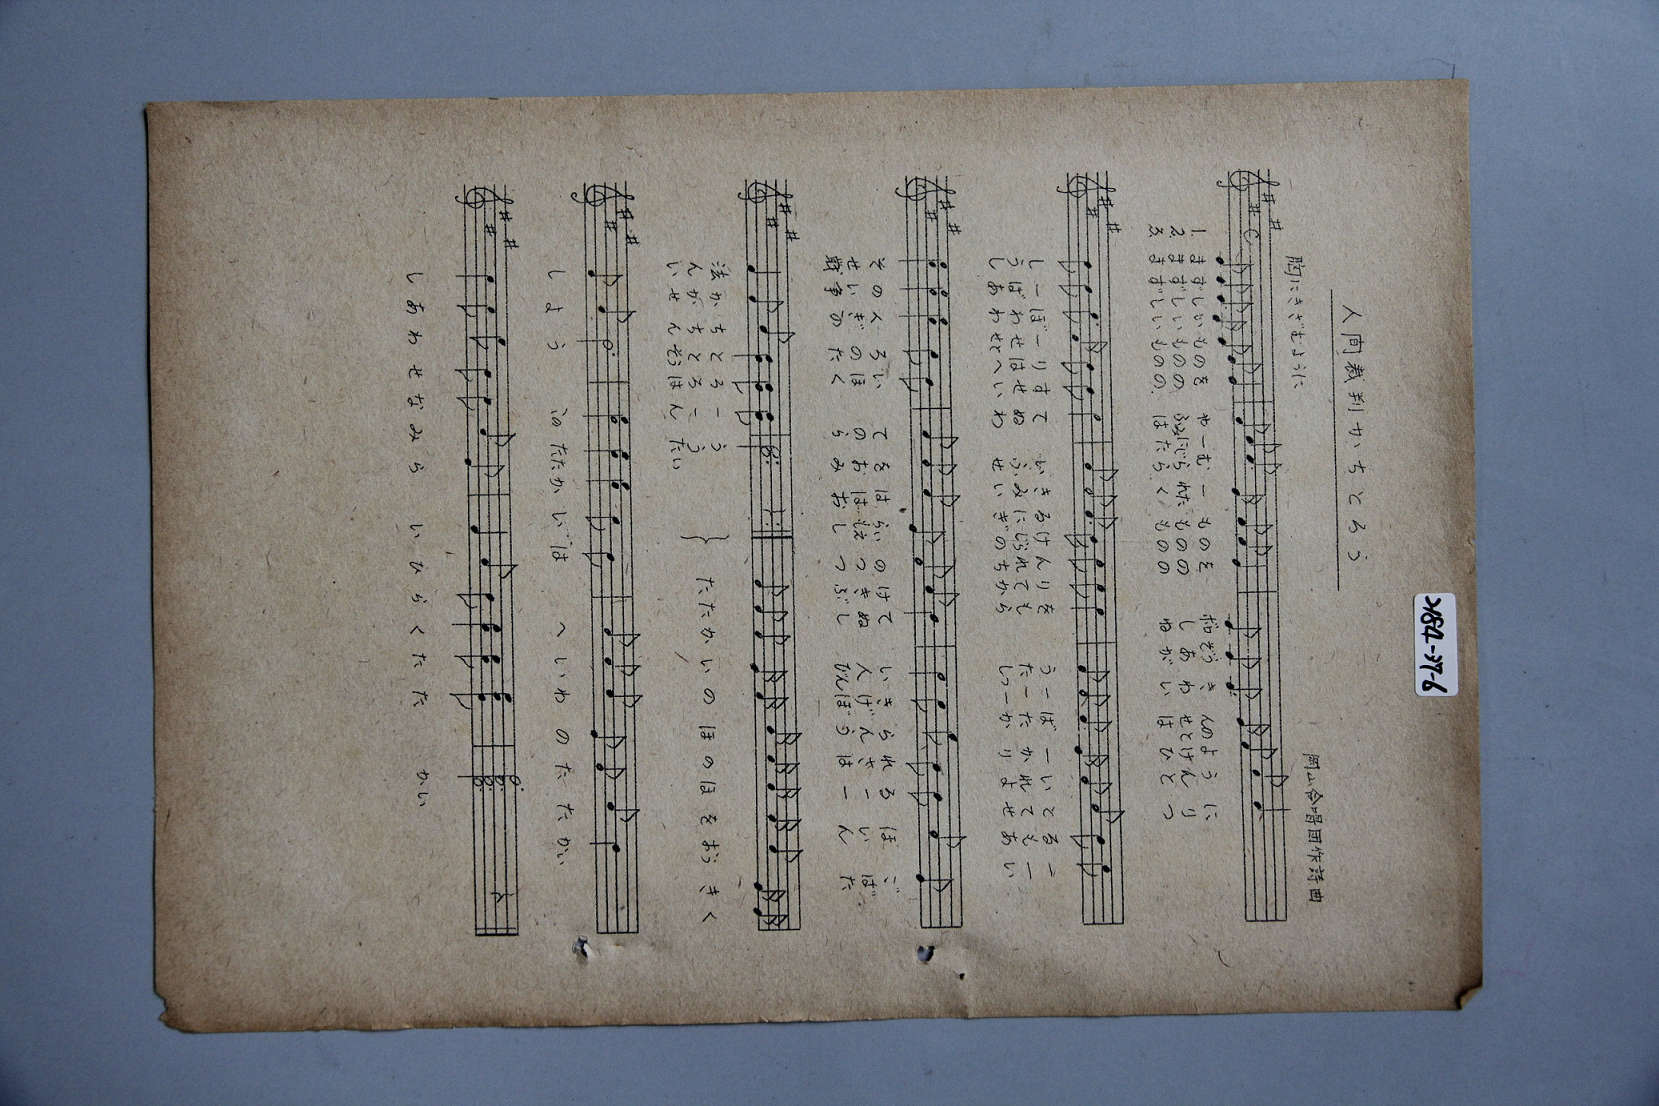 人間裁判かちとろう
岡山合唱団作詩曲
胸にきざむように
1. まずしいものを やーむー ものを ボロぞうきんのように
2. まずしいものの ふみにじられたものの しあわせとけんり
3. まずしいものの はたらくものの ねがいはひとつ
しーぼーりすて いきるけんりを うーばーいとるー
うばわせはせぬ ふみにじられても たーたかれてもー
しあわせとへいわ せいぎのちから しっーかりよせあい
その人 ろい てをはらいのけて いきられるほ ごば
せいぎのほ のおはもえつきぬ 人げんさーいば
戦争のたく らみおしつぶし びんぼうはーんた
法かちとろーう
んがちとろーう
いせんそうはんたい
たたかいのほのほをおうきく
しよう このたたかいは へいわのたたかい
しあわせなみら いひらくたた かい
X54-37-6